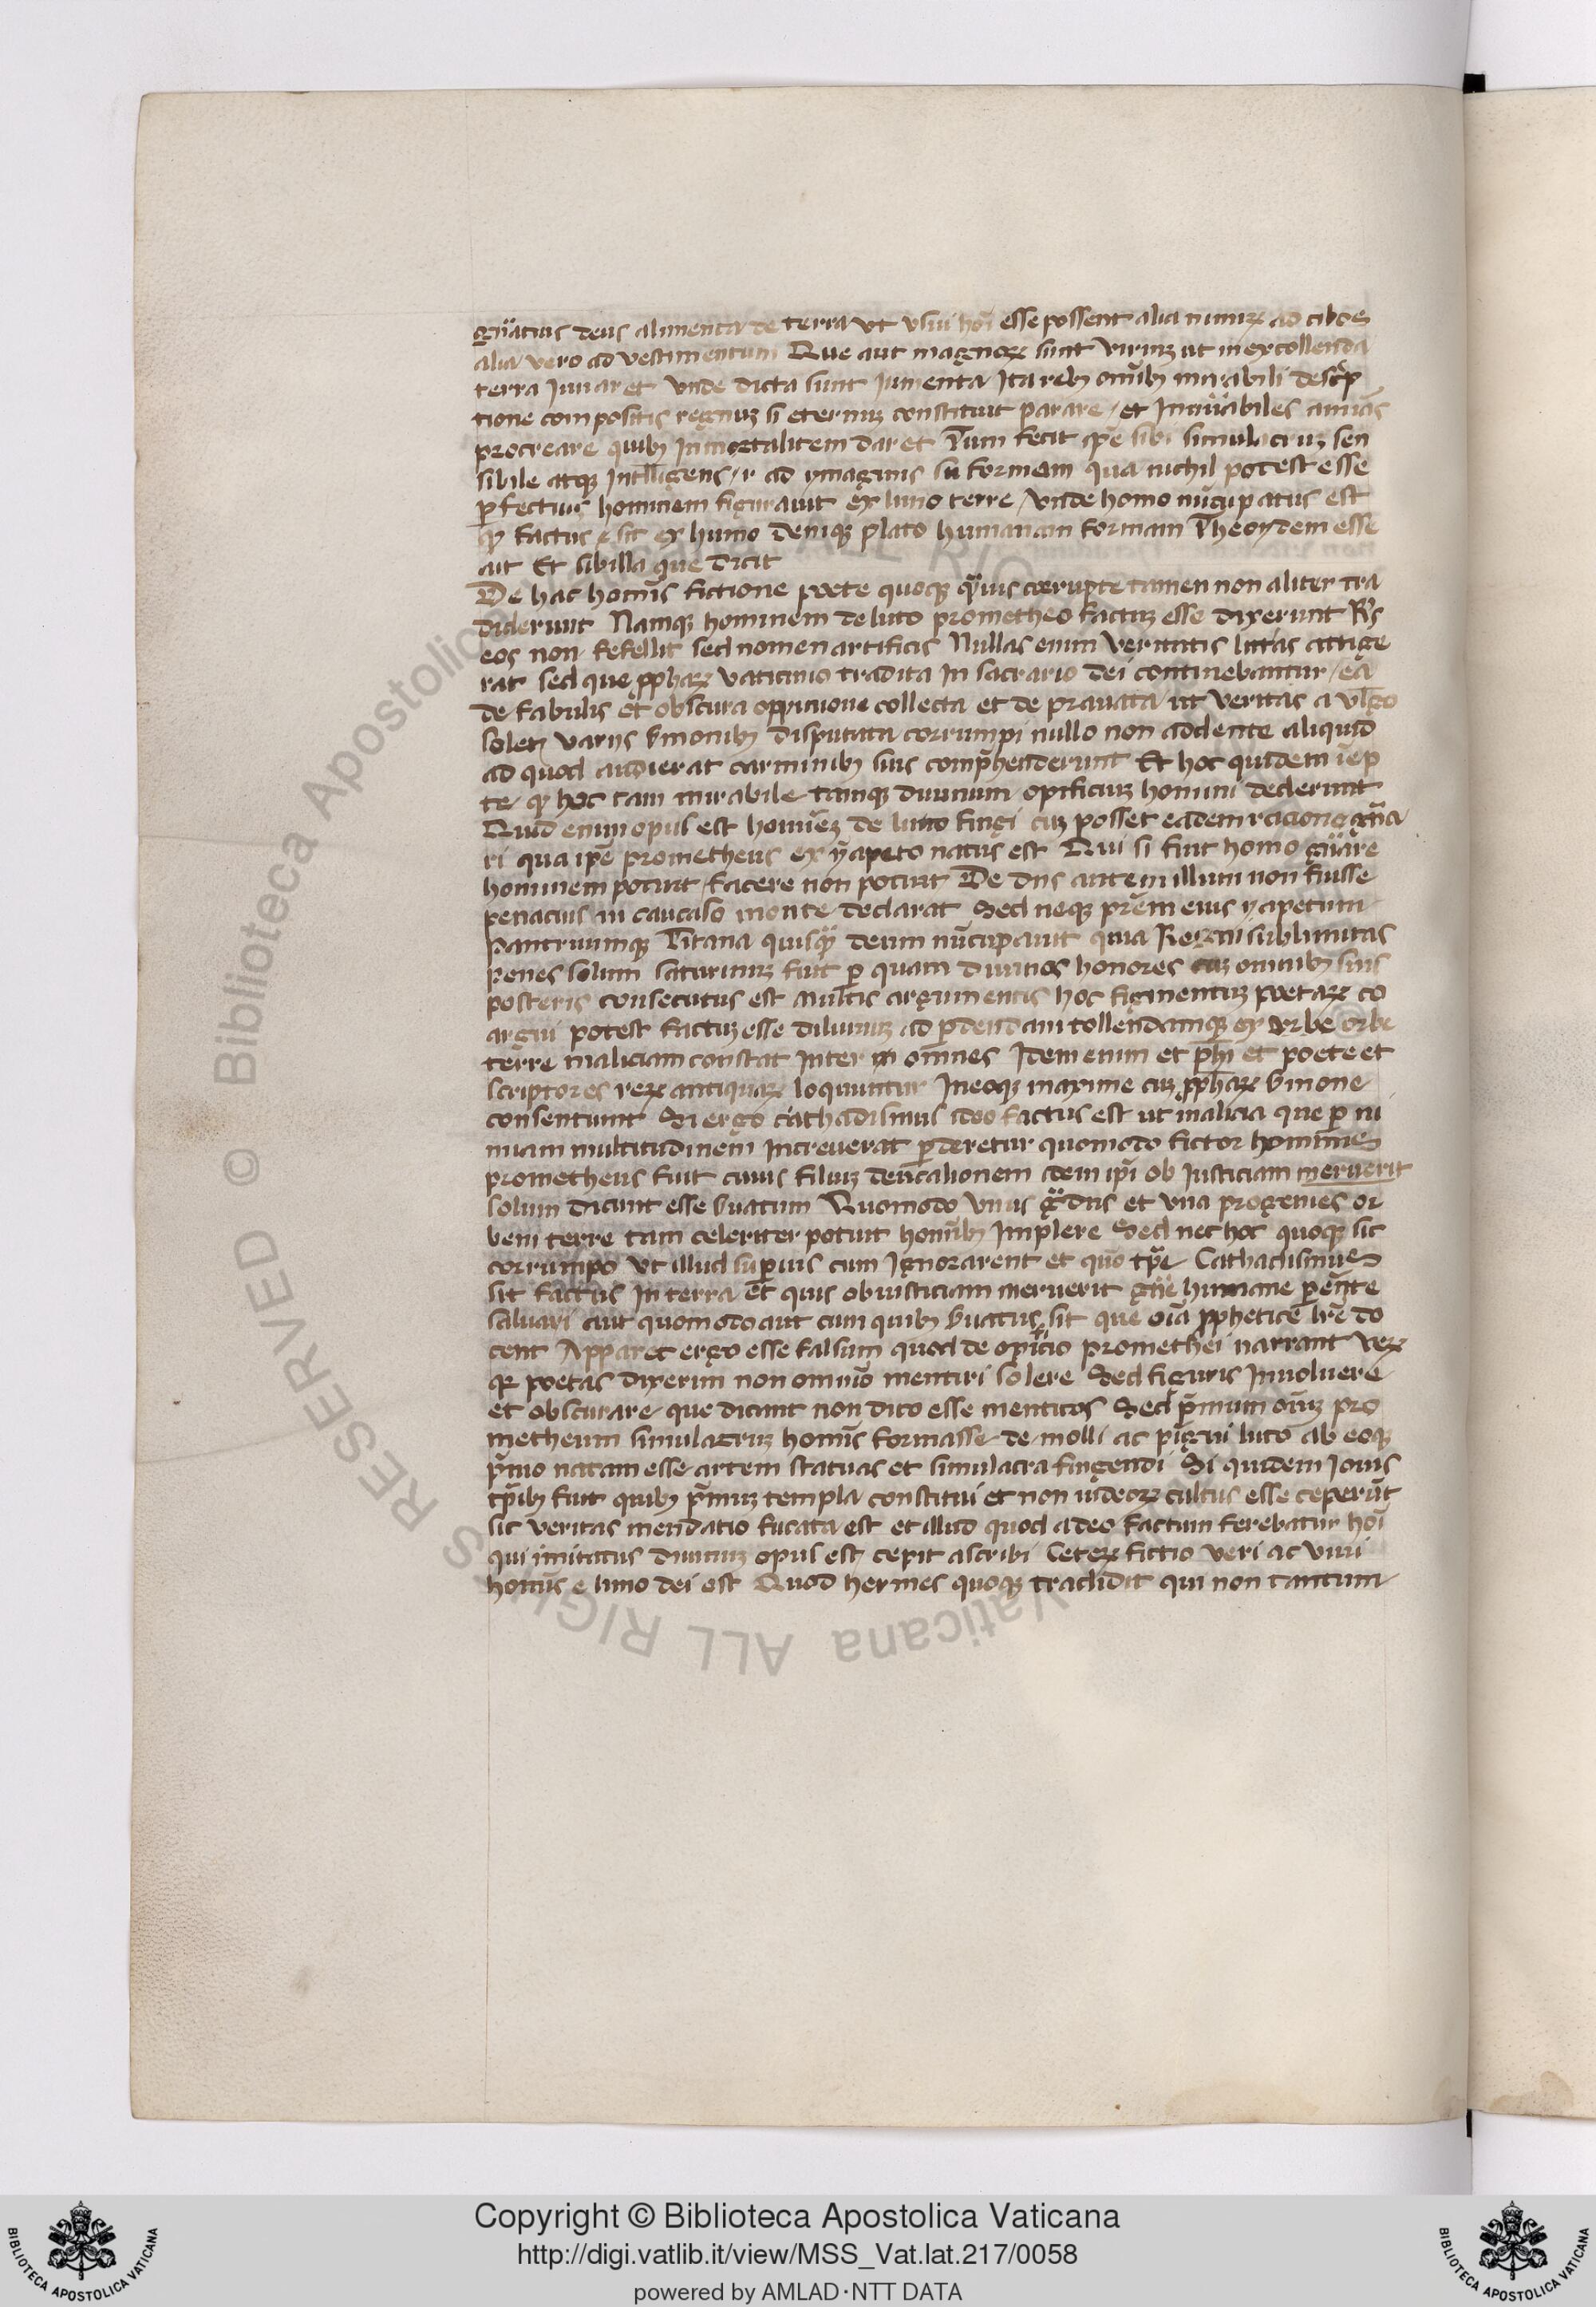 gnͣatius deus alimenta de terra vt vsui hoī esse possent alia nimirꝝ ad cibos
alia vero ad vestimentum Que aut magnoꝝ sunt viriuꝫ ut in excollenda
terra iuuaret vnde dicta sunt iumenta Ita rebꝰ omībꝰ mirabili descrip
tione compositis regnuꝫ si eternuꝫ constituit parare / et innūabiles aīas
procreare quibꝰ inmortalitem daret Tum fecit ipe sibi simulacruꝫ sen
sibile atqꝫ intlligens / ad ymaginis su formam qua nichil potest esse
ꝑfectius hominem figurauit ex limo terre / vnde homo nūcupatus est
ꝙ factus sit ex humo Deniqꝫ plato humanam formam Theoydem esse
ait Et sibilla que dicit
De hac homīs fictione poete quoqꝫ quīs corrupte tamen non aliter tra
diderunt Namqꝫ hominem de luto prometheo factuꝫ esse dixerunt Rs
eos non fefellit sed nomen artificis Nullas enim veritatis lrās attige
rat sed que ꝓphaꝝ vaticinio tradita in sacrario dei continebantur / ea
de fabulis et obscura oppinione collecta et de prauata ut veritas a vlgo
solet varijs ẜmonibꝰ disputata corrumpi nullo non addente aliquid
ad quod audierat carminibꝰ suis comp̄henderunt Et hoc quidem iep
te ꝙ hoc tam mirabile tamqꝫ diuinum opificiuꝫ homini dederunt
Quid enim opus est homīeꝫ de limo fingi cuꝫ posset eadem racione gnͣa
ri qua ipe prometheus ex yapeto natus est Qui si fuit homo gnͣare
hominem potuit / facere non potuit De diis autem illum non fuisse
penacius in caucaso monte declarat Sed neqꝫ prēm eius yapetum
pantruumqꝫ Titana quisqͣ deum nūcupauit quia Regni sublimitas
penes solum saturnuꝫ fuit ꝑ quam diuinos honores cuꝫ omnibꝰ suis
posteris consecutus est Multis argumentis hoc figmentuꝫ poetaꝝ co
argui potest factuꝫ esse diluuiuꝫ ad ꝑdendam tollendamqꝫ ex vrbe orbe
terre maliciam constat inter in omnes Idem enim et phī et poete et
scriptores reꝝ antiquaꝝ loquuntur Ineoqꝫ maxime cuꝫ ꝓphaꝝ ẜmone
consentiunt Si ergo cathaclismus ideo factus est ut malicia que ꝑ ni
miam multitudinem increuerat ꝑderetur quomodo fictor hominis
prometheus fuit cuius filiuꝫ deucalionem idem ipī ob iusticiam meruerit
solum dicunt esse ẜuatum Quomodo vnus gͣdus et vna progenies or
bem terre tam celeriter potuit homībꝰ implere Sed nec hoc quoqꝫ sic
corrumpo vt illud suꝑius cum ignorarent et quo tꝑe Cathaclismus
sit factus in terra et quis ob iusticiam meruerit gnē humane ꝑeunte
saluari aut quomodo aut cum quibꝰ ẜuatus sit que oīa ꝓphetice lrē do
cent Apparet ergo esse falsum quod de opificio promethei narrant veꝝ
qꝛ poetas dixerim non omnīo mentiri solere Sed figuris inuoluere
et obscurare que dicunt non dico esse mentitos Sed pͥmum oīuꝫ pro
metheum simulacruꝫ homīs formasse de molli ac pigui luto ab eoqꝫ
pͥmo natam esse artem statuas et simulacra fingendi Si quidem Iouis
tꝑibꝰ fuit quibꝰ pͥmuꝫ templa constitui et non uideoꝝ cultus esse ceperūt
sic veritas mendatio fucata est et illud quod a deo factum ferebatur hoī
qui imitatus diuinuꝫ opus est cepit ascribi Ceteꝝ fictio veri ac viui
homīs e limo dei est Quod hermes quoqꝫ tradidit qui non tantum
© Biblioteca Apostolica Vaticana ALL RIGHTS RESERVED
Copyright © Biblioteca Apostolica Vaticana
http://digi.vatlib.it/view/MSS_Vat.lat.217/0058
powered by AMLAD·NTT DATA
BIBLIOTECA APOSTOLICA VATICANA
BIBLIOTECA APOSTOLICA VATICANA